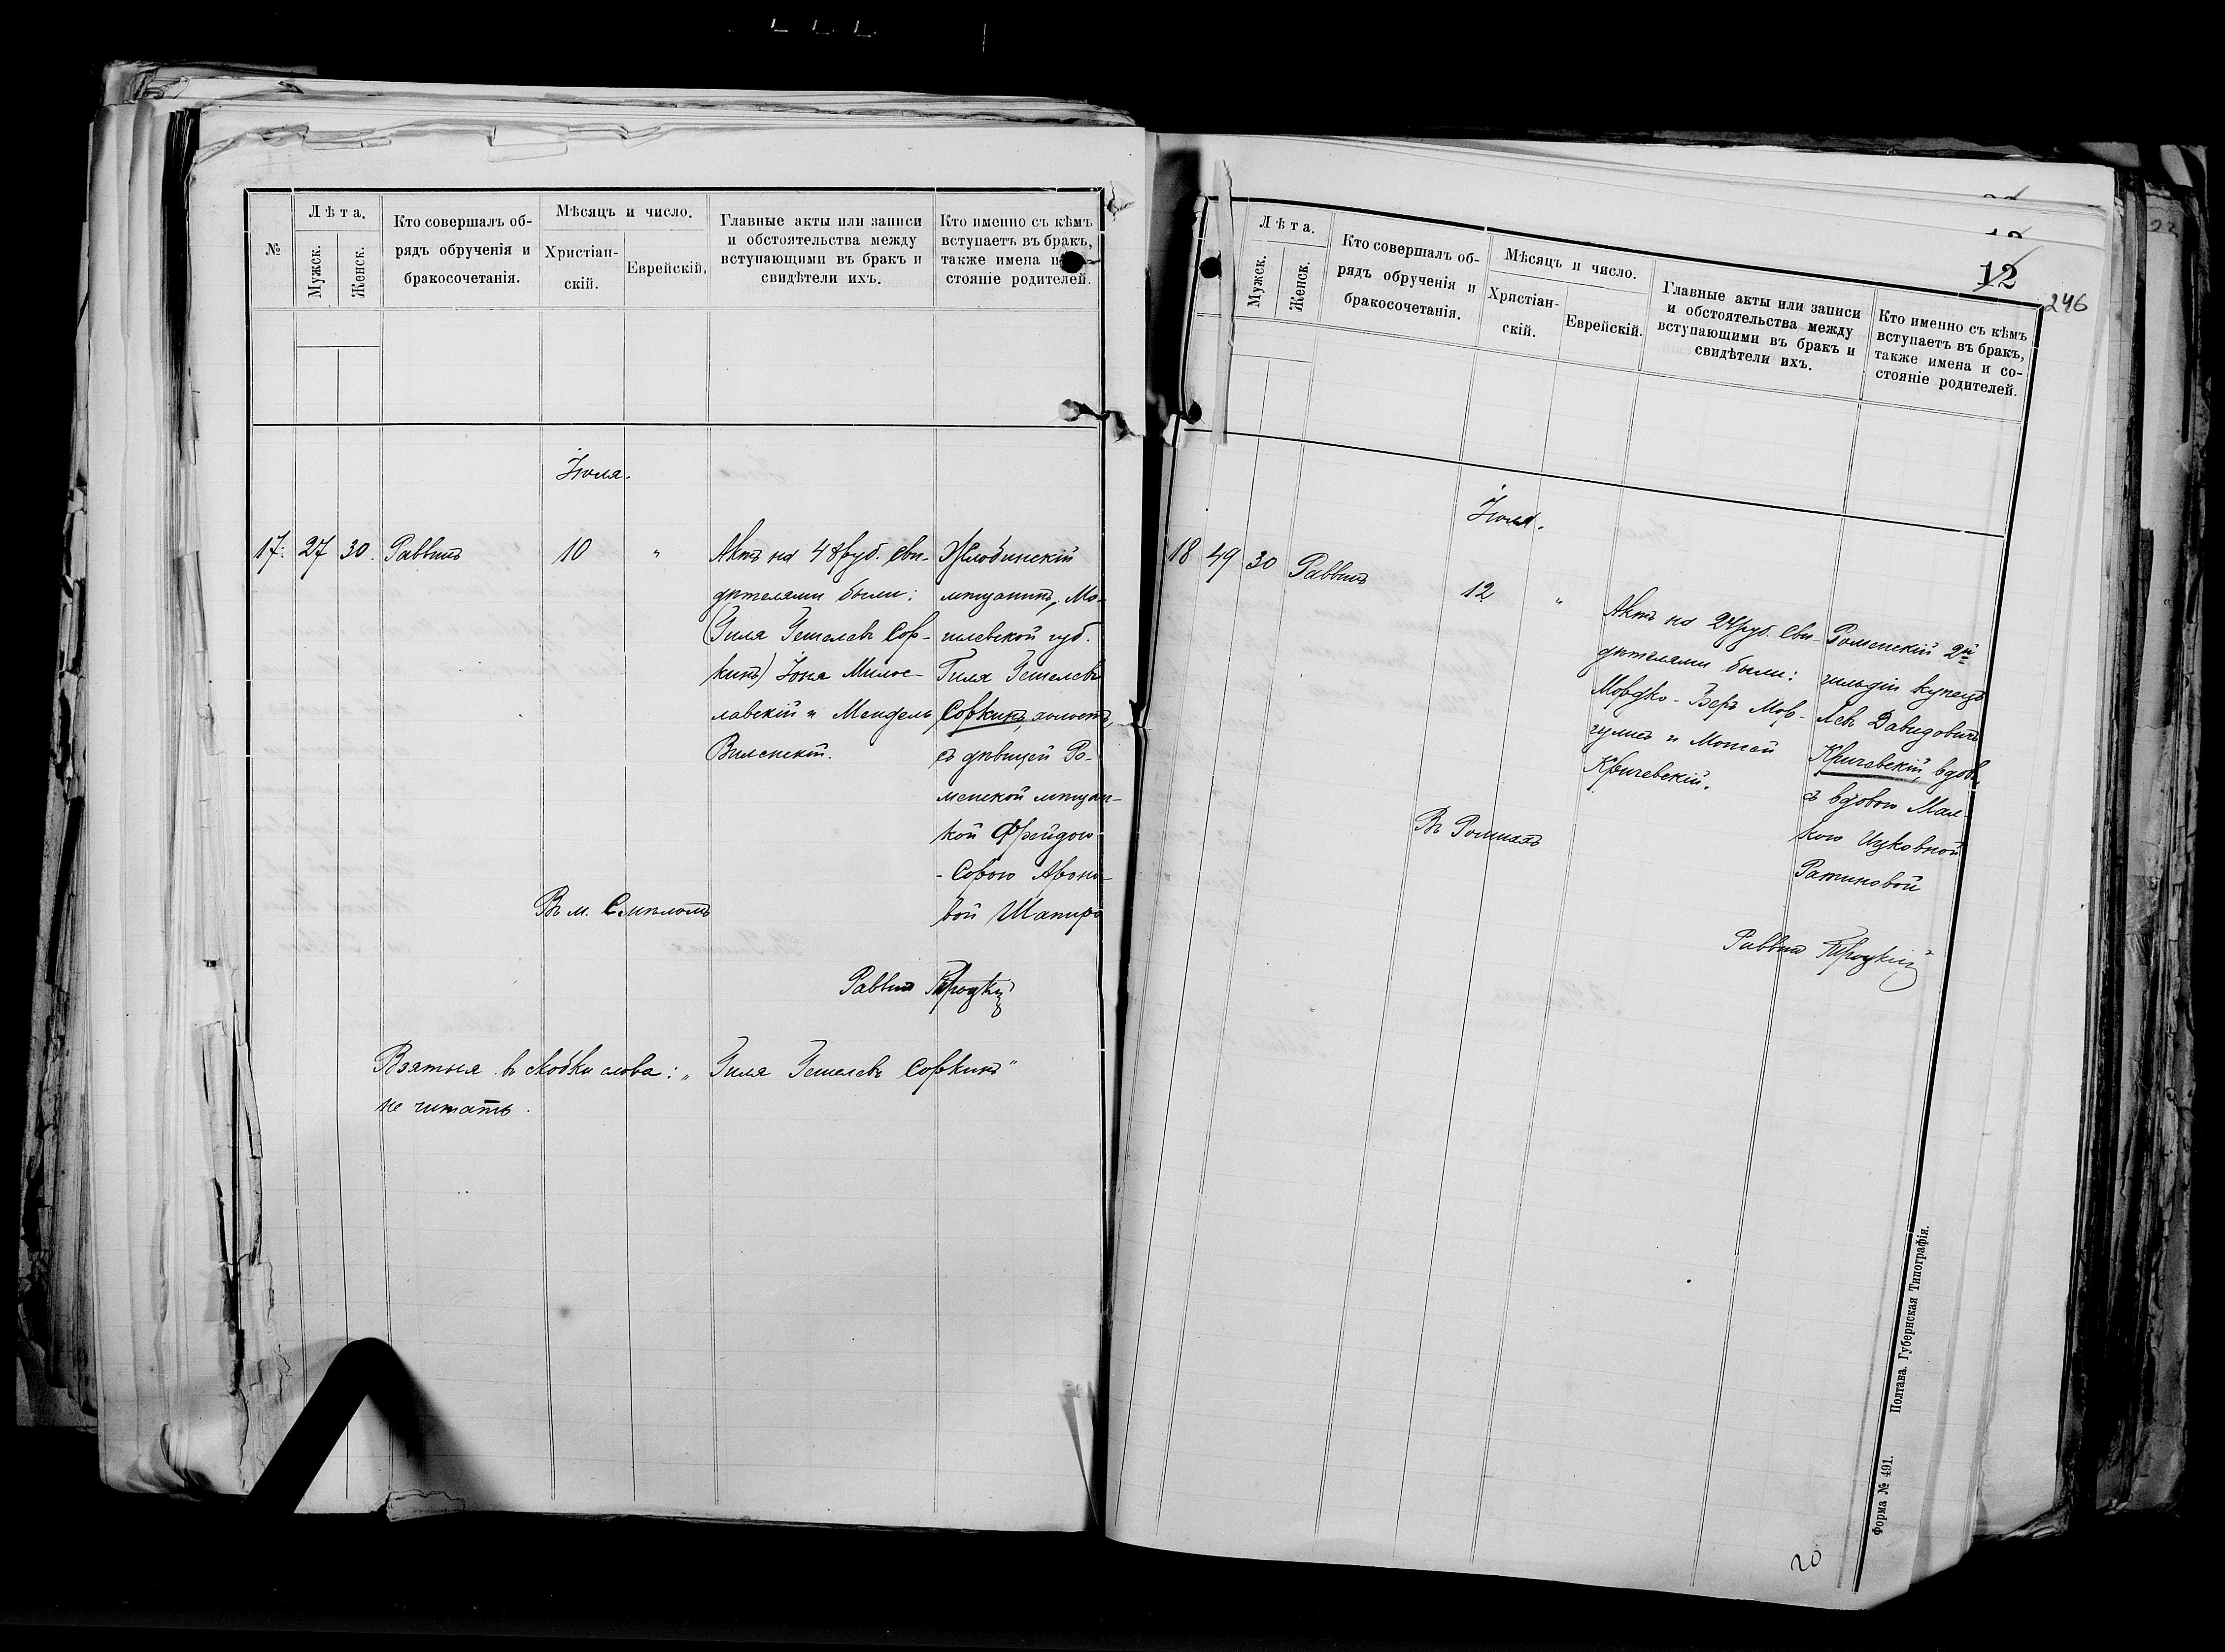 №
Лѣта.
Мужск.
Женск.
Кто совершалъ об-
рядъ обрученія и
бракосочетанія.
Мѣсяцъ и число.
Христіан-
скій.
Еврейскій.
Главные акты или записи
и обстоятельства между
вступающими въ бракъ и
свидѣтели ихъ.
Кто именно съ кѣмъ
вступаетъ въ бракъ,
также имена и
стояніе родителей.
Іюля.
17. 27 30. Раввинъ 10 "
Актъ на 48 руб. Сви-
дѣтелями были:
(Гиля Гешелевъ Сор-
кинъ) Іона Милос-
лавскій и Мендель
Виленскій.
Жлобинскій
мѣщанинъ, Мо-
гилевской губ.
Гиля Гешелевъ
Соркинъ, холостъ,
съ дѣвицей Ро-
менской мѣщан-
кой Фрейдою
- Сорою Ароно-
вой Шапиро
Въ м. Смѣломъ
Раввинъ Троцкій
Взятыя въ скобки слова: „Гиля Гешелевъ Соркинъ"
не читать.
12
246
Лѣта.
Мужск.
Женск.
Кто совершалъ об-
рядъ обрученія и
бракосочетанія.
Мѣсяцъ и число.
Христіан-
скій.
Еврейскій.
Главные акты или записи
и обстоятельства между
вступающими въ бракъ и
свидѣтели ихъ.
Кто именно съ кѣмъ
вступаетъ въ бракъ,
также имена и со-
стояніе родителей.
Іюля.
18 49 30 Раввинъ 12 "
Актъ на 24 руб. Сви-
дѣтелями были:
Мордко-Беръ Мор-
гулисъ и Моисей
Кричевскій.
Роменскій 2й
гильдіи купецъ
Лев Давидовичъ
Кричевскій, вдов.,
съ вдовою Мал-
кою Ицковной
Ратиновой
Въ Ромнахъ
Раввинъ Троцкій
Форма № 491. Полтава. Губернская Типографія.
20